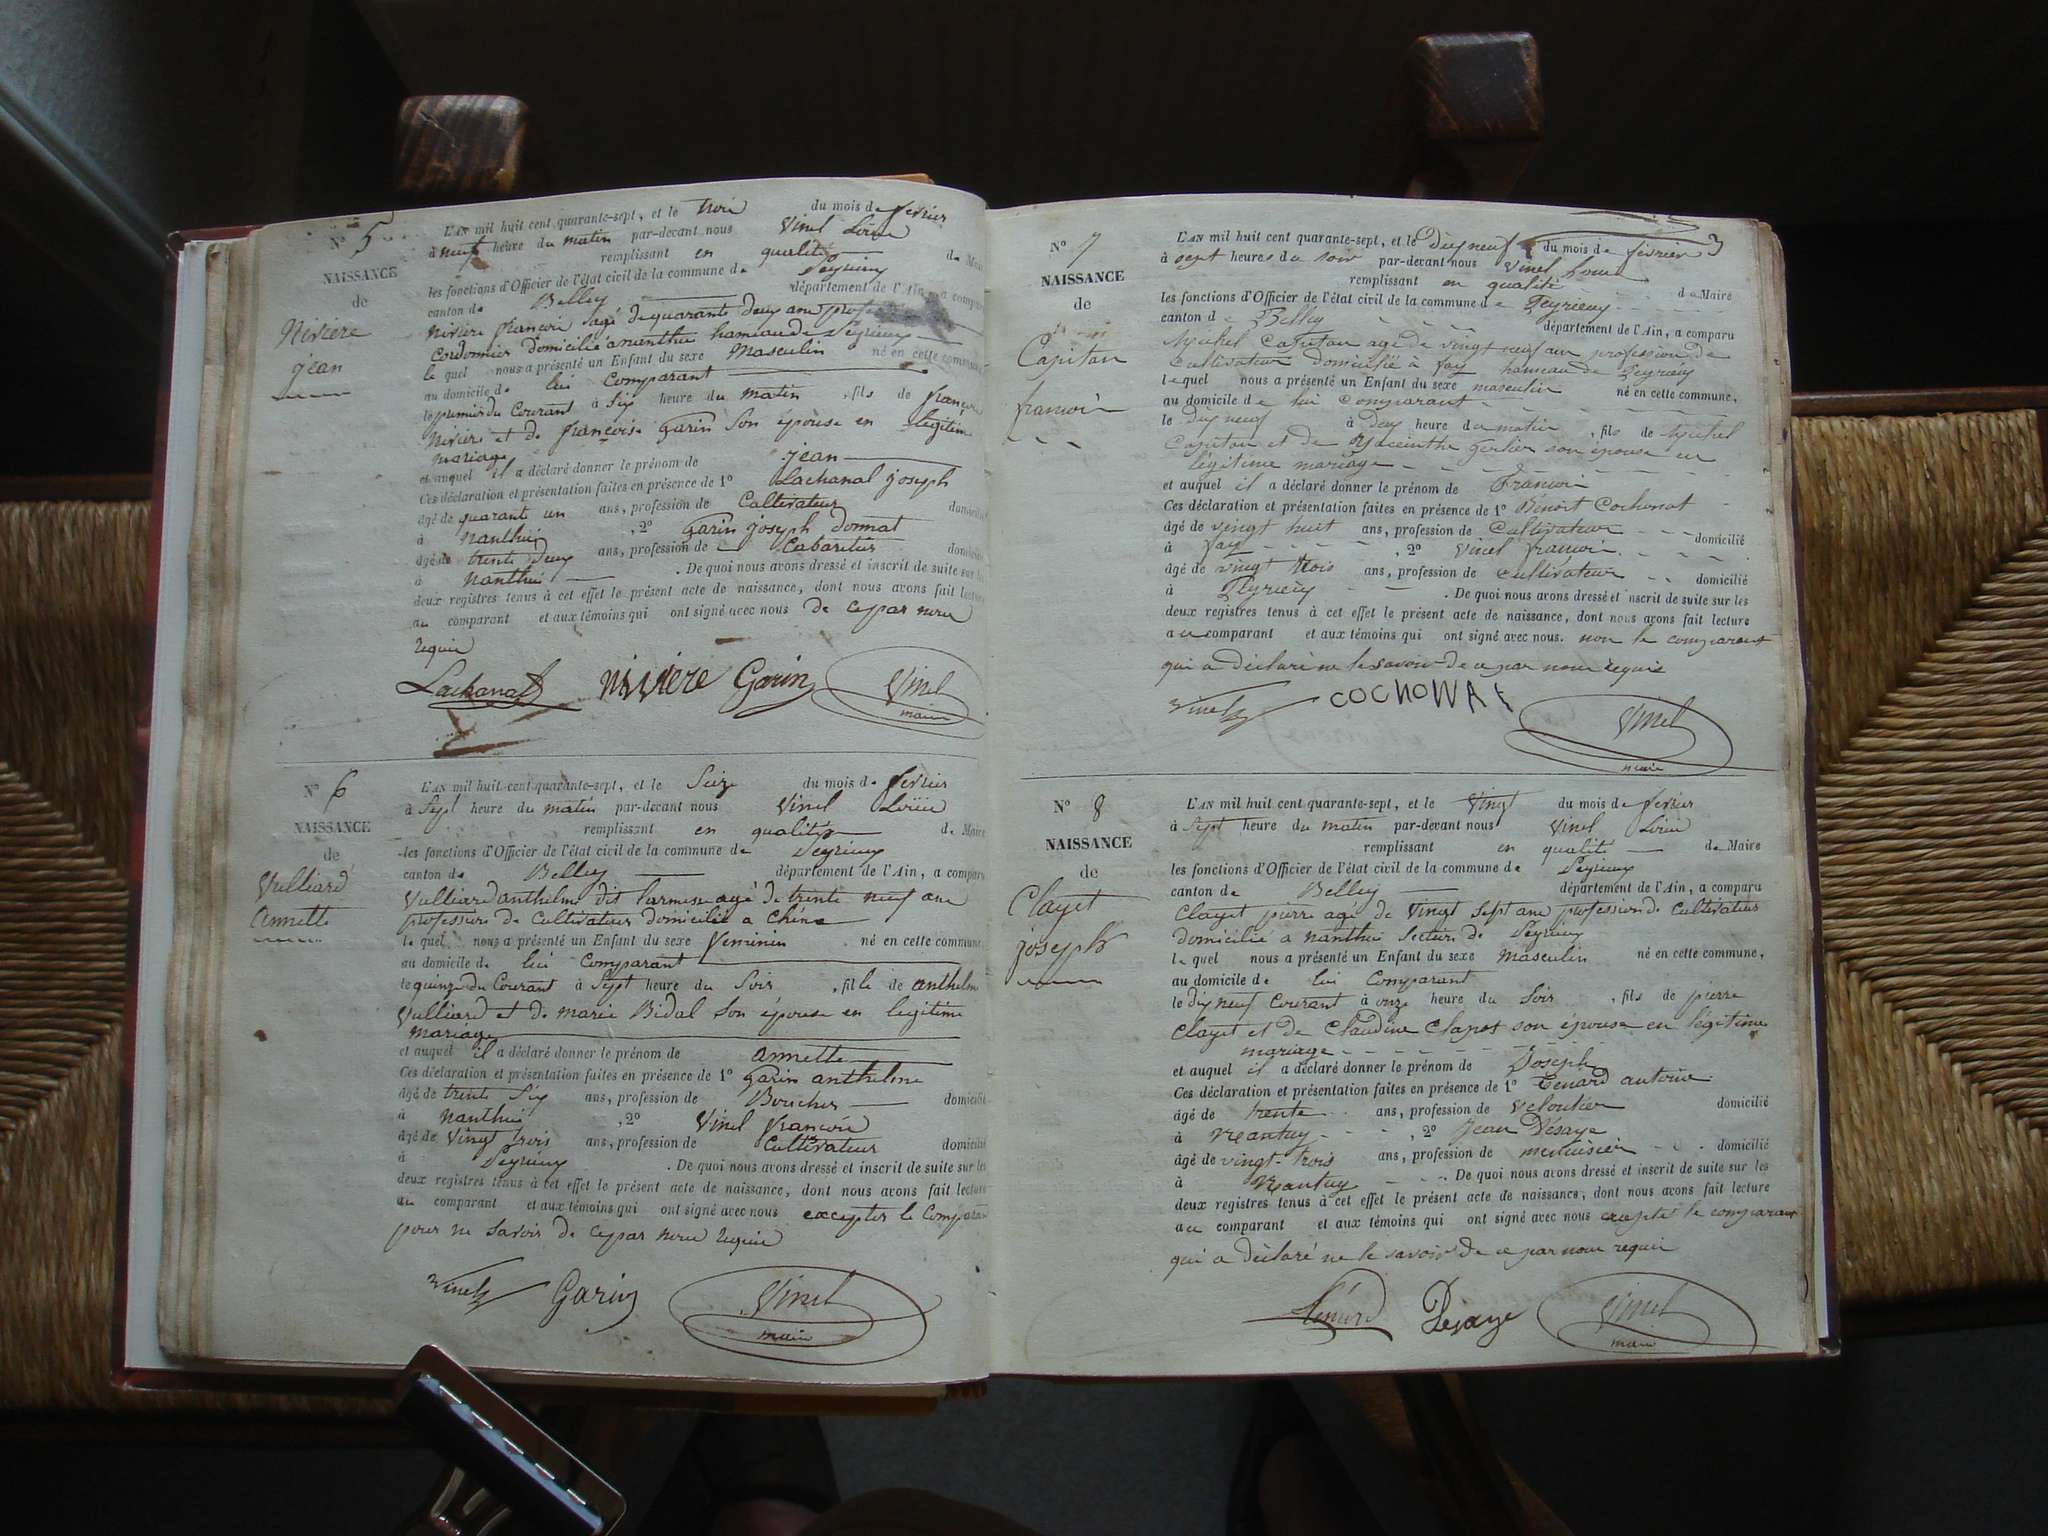 N° 5
NAISSANCE
de
Nivière
jean
L'AN mil huit cent quarante-sept, et le trois du mois de fevrier
à neuf heure du matin par-devant nous Vinel Loüis
remplissant en qualité de Maire
les fonctions d'Officier de l'état civil de la commune de Peyrieux
canton de Belley département de l'Ain, a comparu
Nivière françois agé de quarante deux ans
Cordonnier domicilié a nanthui hameau de Peyrieux
le quel nous a présenté un Enfant du sexe Masculin né en cette commune
au domicile de lui Comparant
le premier du Courant à Six heure du matin , fils de françois
Nivière et de françoise Garin Son épouse en legitime
mariage
et auquel il a déclaré donner le prénom de jean
Ces déclaration et présentation faites en présence de 1° Lachanal joseph
âgé de quarante un ans, profession de Caltivateur domicilié
à nanthui , 2° Garin joseph donnat
âgé de trente deux ans, profession de Cabaritier domicilié
à nanthui . De quoi nous avons dressé et inscrit de suite sur les
deux registres tenus à cet effet le présent acte de naissance, dont nous avons fait lecture
au comparant et aux témoins qui ont signé avec nous de ce par nous
requis
Lachanal nivière Garin Vinel
maire
N° 6
NAISSANCE
de
Vulliard
Annette
L'AN mil huit cent quarante-sept, et le Seize du mois de fevrier
à Sept heure du matin par-devant nous Vinel Loüis
remplissant en qualité de Maire
les fonctions d'Officier de l'état civil de la commune de Peyrieux
canton de Belley département de l'Ain, a comparu
Vulliard anthelme dit agé de trente neuf ans
profession de Cultivateur domicilié a
le quel nous a présenté un Enfant du sexe feminin né en cette commune
au domicile de lui Comparant
le quinze du Courant à Sept heure du Soir , fille de anthelme
Vulliard et de marie Bidal Son épouse en legitime
mariage
et auquel il a déclaré donner le prénom de annette
Ces déclaration et présentation faites en présence de 1° Garin anthelme
âgé de trente Six ans, profession de Boucher domicilié
à nanthui , 2° Vinel françois
âgé de Vingt trois ans, profession de Cultivateur domicilié
à Peyrieux . De quoi nous avons dressé et inscrit de suite sur les
deux registres tenus à cet effet le présent acte de naissance, dont nous avons fait lecture
au comparant et aux témoins qui ont signé avec nous excepter le Comparant
pour ne Savoir de ce par nous requis
Vinel Garin Vinel
maire
3
N° 7
NAISSANCE
de
Capitan
francois
L'AN mil huit cent quarante-sept, et le dix neuf du mois de fevrier
à sept heures du soir par-devant nous Vinel Louis
remplissant en qualité de Maire
les fonctions d'Officier de l'état civil de la commune de Peyrieux
canton de Belley département de l'Ain, a comparu
Michel Capitan agé de vingt neuf ans profession de
Cultivateur domicilié à fay hameau de Peyrieux
lequel nous a présenté un Enfant du sexe masculin né en cette commune,
au domicile de lui comparant
le dix neuf à deux heure du matin , fils de Michel
Capitan et de Hyacinthe Gerlier son épouse en
légitime mariage
et auquel il a déclaré donner le prénom de francois
Ces déclaration et présentation faites en présence de 1° Bénoit Cochonat
âgé de vingt huit ans, profession de Cultivateur domicilié
à fay , 2° Vinel francois
âgé de vingt trois ans, profession de cultivateur domicilié
à Peyrieux . De quoi nous avons dressé et inscrit de suite sur les
deux registres tenus à cet effet le présent acte de naissance, dont nous avons fait lecture
a ce comparant et aux témoins qui ont signé avec nous. non le comparant
qui a déclaré ne le savoir de ce par nous requis
Vinel COCHONAT Vinel
maire
N° 8
NAISSANCE
de
Clayet
joseph
L'AN mil huit cent quarante-sept, et le Vingt du mois de fevrier
à Sept heure du matin par-devant nous Vinel Loüis
remplissant en qualité de Maire
les fonctions d'Officier de l'état civil de la commune de Peyrieux
canton de Belley département de l'Ain, a comparu
Clayet pierre agé de Vingt Sept ans profession de Cultivateur
domicilié a nanthui Section de Peyrieux
le quel nous a présenté un Enfant du sexe Masculin né en cette commune,
au domicile de lui Comparant
le dix neuf Courant à onze heure du Soir , fils de pierre
Clayet et de Claudine Clapot son épouse en légitime
mariage
et auquel il a déclaré donner le prénom de Joseph
Ces déclaration et présentation faites en présence de 1° Tenard antoine
âgé de trente ans, profession de domicilié
à Nantuy , 2° Jean Désaye
âgé de vingt-trois ans, profession de menuisier domicilié
à Nantuy . De quoi nous avons dressé et inscrit de suite sur les
deux registres tenus à cet effet le présent acte de naissance, dont nous avons fait lecture
a ce comparant et aux témoins qui ont signé avec nous excepté le comparant
qui a déclaré ne le savoir de ce par nous requis
Tenard Desaye Vinel
maire